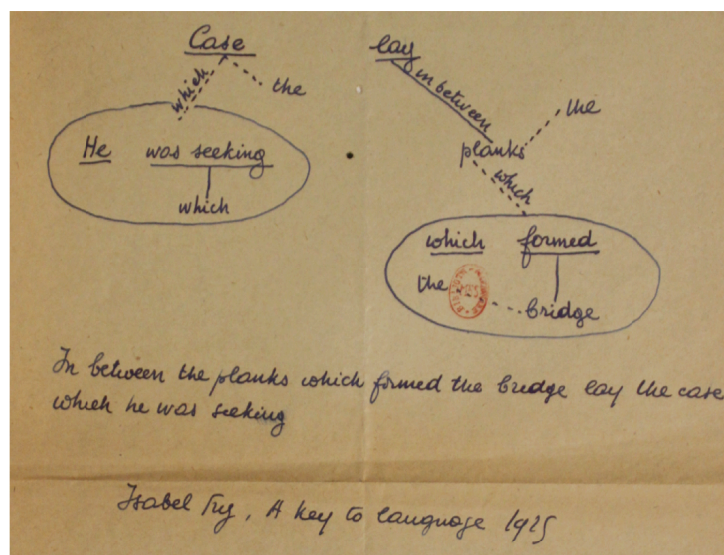 Case
which
the
He was seeking
which
lay
in between
the
planks
which
which formed
the
bridge
In between the planks which formed the bridge lay the case
which he was seeking
Isabel Fry, A key to language 1925